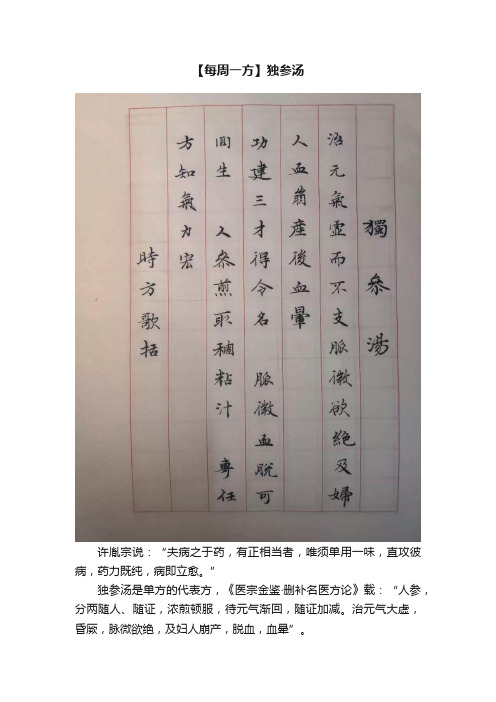 【每周一方】独参汤
獨參湯
治元氣虛而不支脈微欲絕及婦
人血崩產後血暈
功建三才得令名 脈微血脫可
回生 人參煎取稠粘汁 專任
方知氣力宏
時方歌括
许胤宗说：“夫病之于药，有正相当者，唯须单用一味，直攻彼
病，药力既纯，病即立愈。”
独参汤是单方的代表方，《医宗金鉴·删补名医方论》载：“人参，
分两随人、随证，浓煎顿服，待元气渐回，随证加减。治元气大虚，
昏厥，脉微欲绝，及妇人崩产，脱血，血晕”。